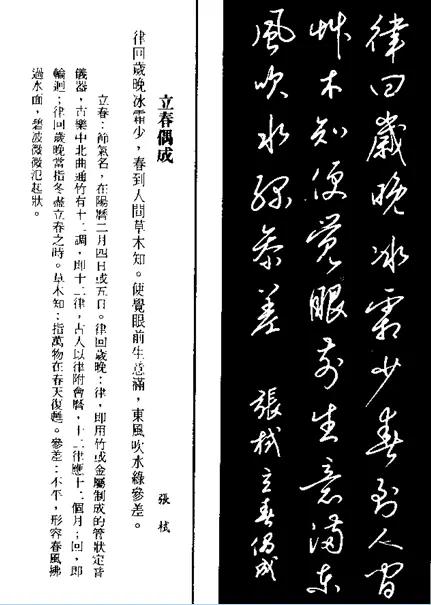 律回歲晚冰霜少春到人間
艸木知便覺眼前生意滿東
風吹水綠參差 張栻立春偶成
立春偶成 張栻
律回歲晚冰霜少，春到人間草木知。便覺眼前生意滿，東風吹水綠參差。
立春：節氣名，在陽曆二月四日或五日。律回歲晚：律，即用竹或金屬制成的管狀定音
儀器，古樂中北曲通竹有十二調，即十二律，古人以律附會曆，十二律應十二個月；回，即
輪迴；律回歲晚當指冬盡立春之時。草木知：指萬物在春天復甦。參差：不平，形容春風拂
過水面，碧波微微泛起狀。